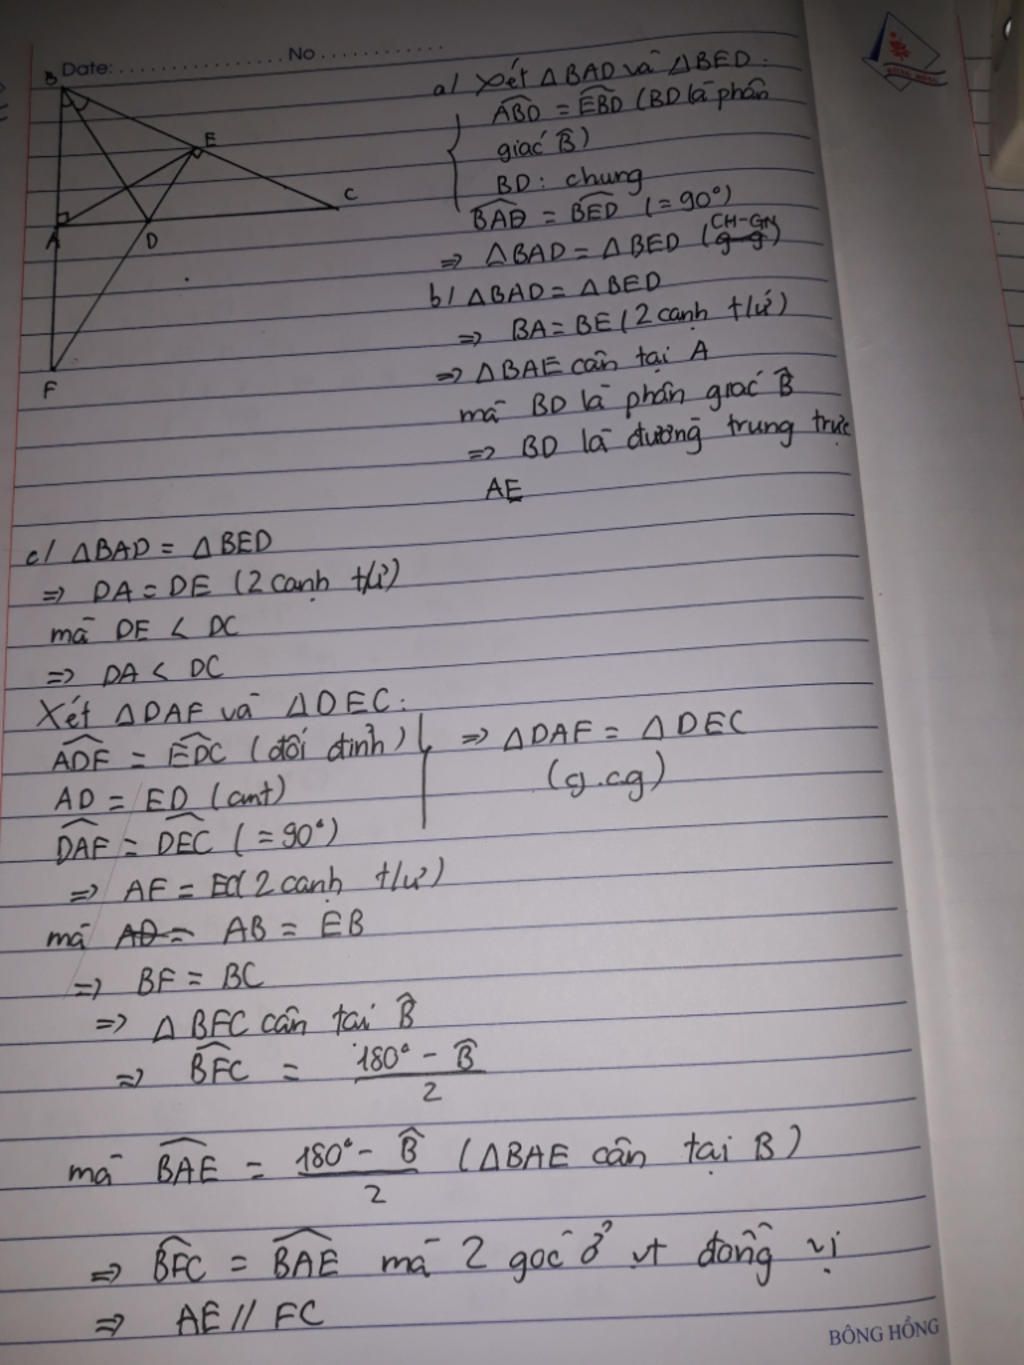 Date: .................. No ..................
B
E
C
A
D
F
BÔNG HỒNG
a/ Xét ΔBAD và ΔBED:
ABD̂ = EBD̂ (BD là phân
giác B̂)
BD: chung
BAD̂ = BED̂ (= 90°)
CH-GN
⇒ ΔBAD = ΔBED (g-g)
b/ ΔBAD = ΔBED
⇒ BA = BE (2 cạnh t/ứ)
⇒ ΔBAE cân tại A
mà BD là phân giác B̂
⇒ BD là đường trung trực
AE
c/ ΔBAD = ΔBED
⇒ DA = DE (2 cạnh t/ứ)
mà DE < DC
⇒ DA < DC
Xét ΔDAF và ΔDEC:
ADF̂ = EDĈ (đối đỉnh)
⇒ ΔDAF = ΔDEC
AD = ED (cmt)
(g.c.g)
DAF̂ = DEĈ (= 90°)
⇒ AF = EC (2 cạnh t/ứ)
mà AD = AB = EB
⇒ BF = BC
⇒ ΔBFC cân tại B̂
⇒ BFĈ = 180° - B̂ / 2
mà BAÊ = 180° - B̂ / 2 (ΔBAE cân tại B)
⇒ BFĈ = BAÊ mà 2 góc ở vt đồng vị
⇒ AE // FC
BÔNG HỒNG